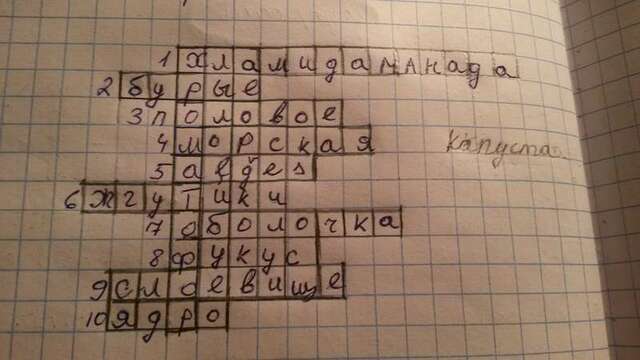 1 хламидаманада
2 бурые
3 половое
4 морская
капуста
5
6 жгутики
7 оболочка
8 фукус
9 слоевище
10 ядро